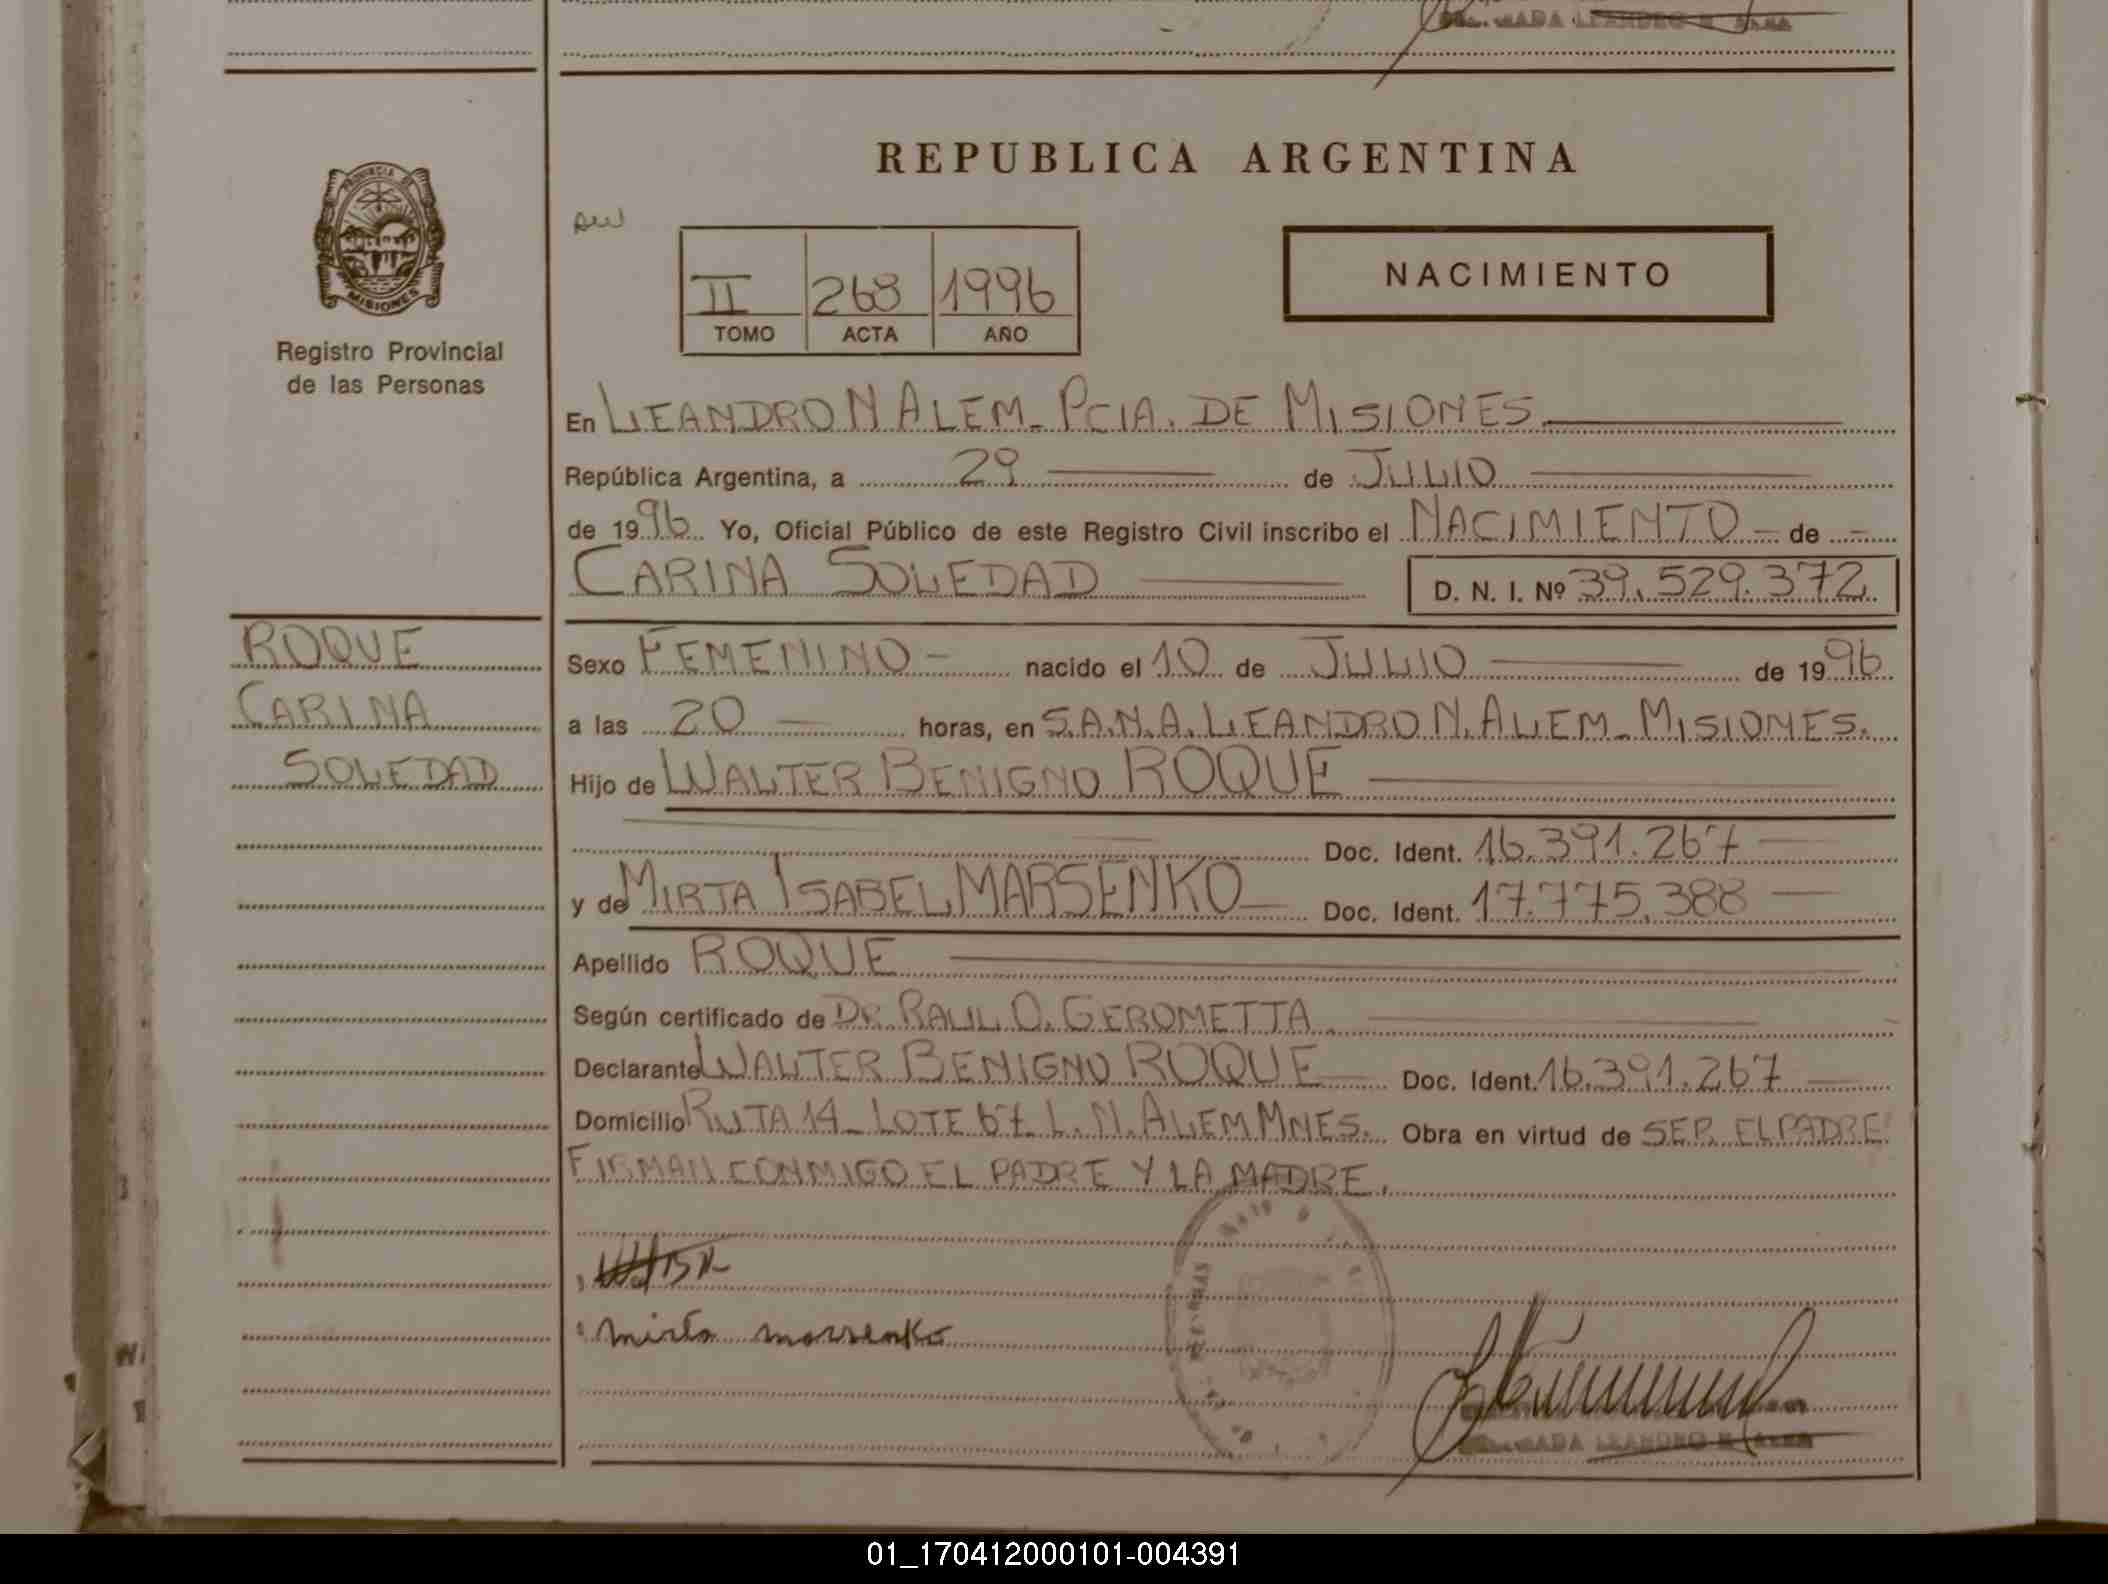 REPUBLICA ARGENTINA
PROVINCIA DE
MISIONES
Registro Provincial
de las Personas
II 268 1996
TOMO ACTA AÑO
NACIMIENTO
En LEANDRO N ALEM - PCIA. DE MISIONES
República Argentina, a 29 de JULIO
de 1996 Yo, Oficial Público de este Registro Civil inscribo el NACIMIENTO - de -
CARINA SOLEDAD D. N. I. Nº 39.529.372
ROQUE
CARINA
SOLEDAD
Sexo FEMENINO - nacido el 10 de JULIO de 1996
a las 20 horas, en S.A.N.A. LEANDRO N. ALEM - MISIONES.
Hijo de WALTER BENIGNO ROQUE
Doc. Ident. 16.391.267
y de MIRTA ISABEL MARSENKO Doc. Ident. 17.775.388
Apellido ROQUE
Según certificado de DR. RAUL O. GEROMETTA
Declarante WALTER BENIGNO ROQUE Doc. Ident. 16.391.267
Domicilio RUTA 14 - LOTE 67 L. N. ALEM MNES. Obra en virtud de SER EL PADRE
FIRMAN CONMIGO EL PADRE Y LA MADRE.
mirta marsenko
LEANDRO N. ALEM
01_170412000101-004391